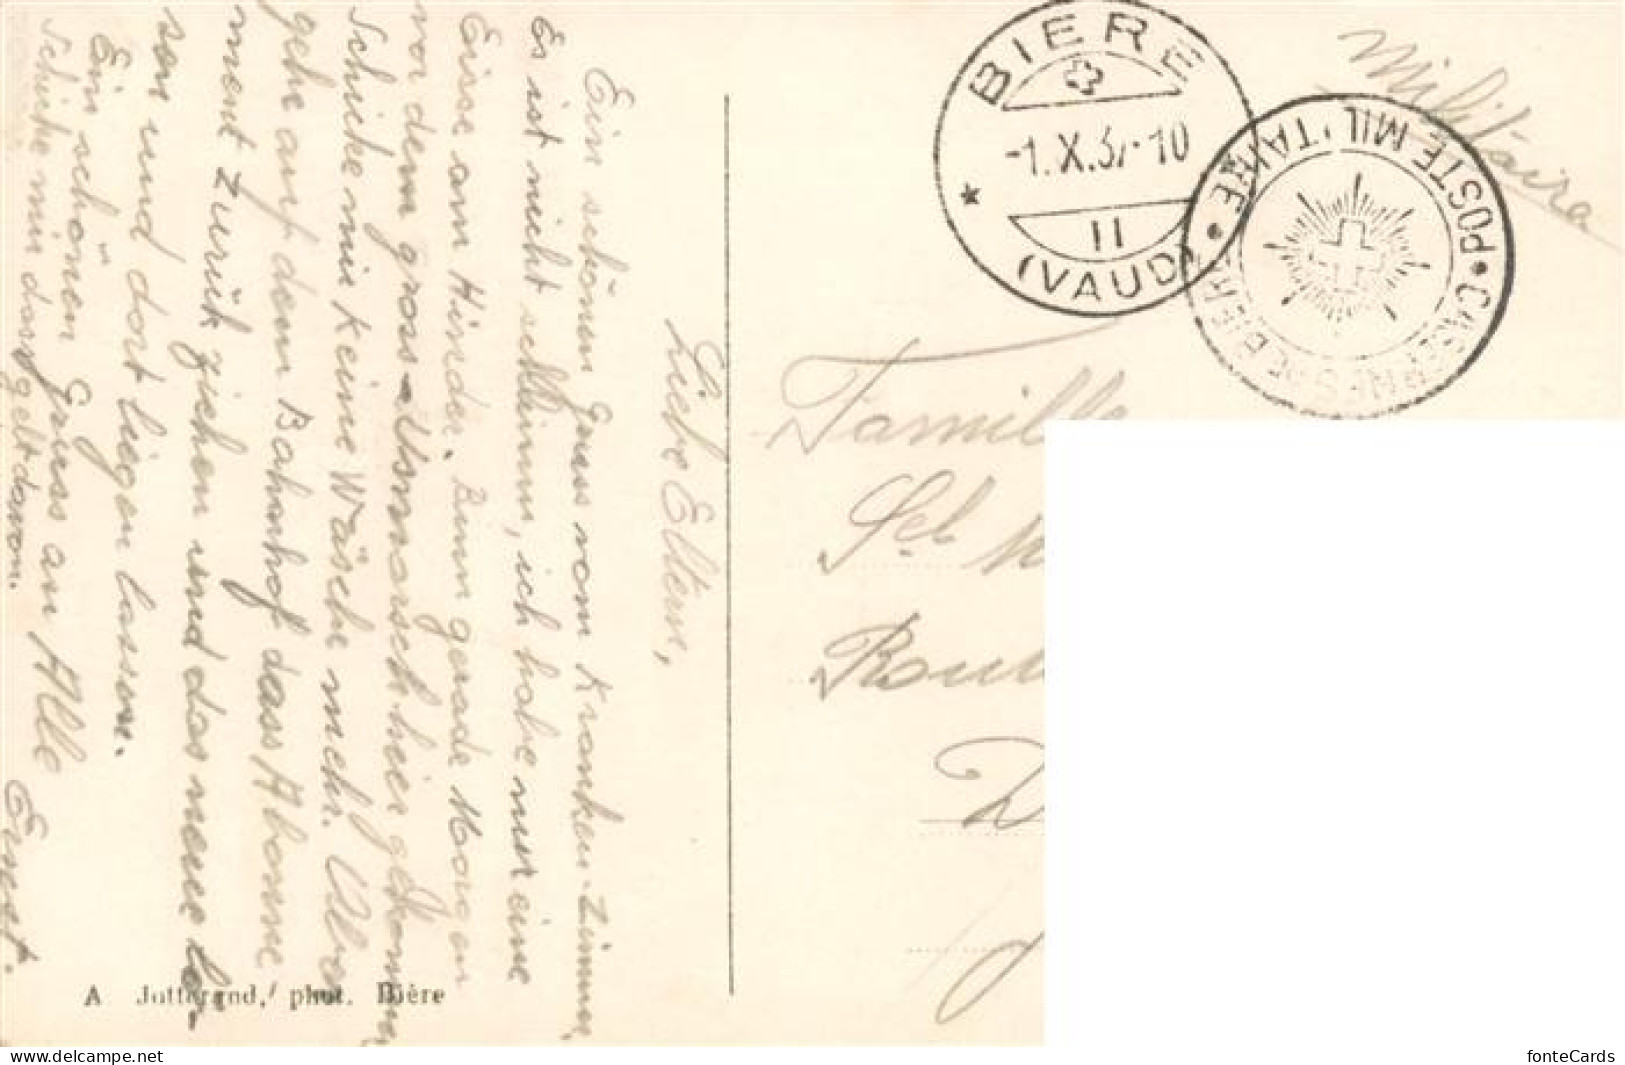 Liebe Eltern,
Ein schönen Gruss vom Kranken-Zimmer
Es ist nicht schlimm, ich habe nur eine
Eisse am Hinder. Binn gerade Morgen
vor dem gross-Ausmarsch hier gekommen
Schicke mir keine Wäsche mehr. Aber
gehe auf dem Bahnhof dass Abonne-
ment zurük ziehen und das neue lö-
sen und dort liegen lassen.
Ein schönen Gruss an Alle
Schicke mir dass geld davon.
Ernest.
A Jotterand, phot. Bière
BIERE
-1.X.37-10
II
(VAUD)
POSTE MILITAIRE • CASERNES DE BIERE •
Militaire
Famille
Rou
D
www.delcampe.net
fonteCards